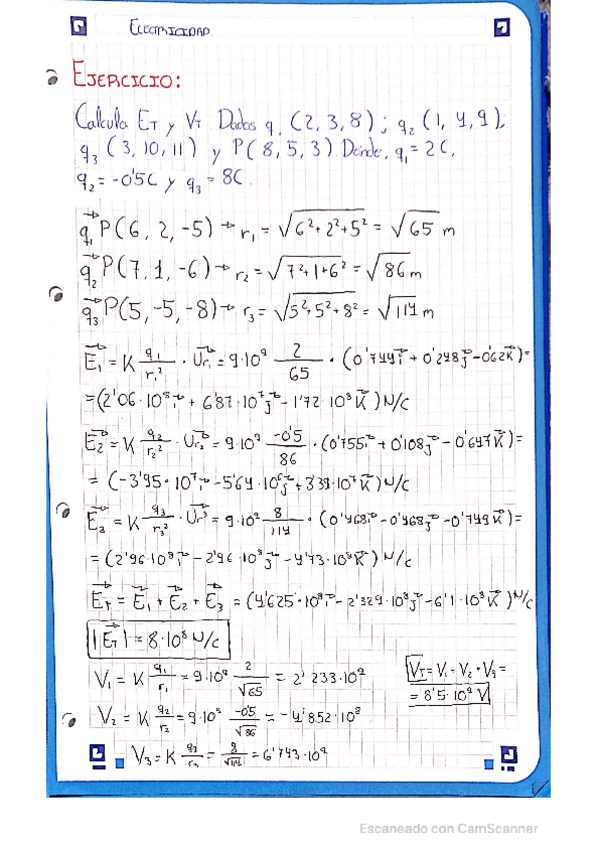 ELECTRICIDAD.
EJERCICIO:
Calcula ET y VT. Dados q1 (2, 3, 8); q2 (1, 4, 9);
q3 (3, 10, 11) y P(8, 5, 3). Donde, q1 = 2C,
q2 = -0'5C y q3 = 8C.
q1P(6, 2, -5) → r1 = √6²+2²+5² = √65 m
q2P(7, 1, -6) → r2 = √7²+1+6² = √86 m
q3P(5, -5, -8) → r3 = √5²+5²+8² = √114 m
E1 = K q1/r1² · Ur1 = 9·10⁹ 2/65 · (0'744i + 0'248j - 0'62K) =
= (2'06·10⁸i + 6'87·10⁷j - 1'72·10⁸K) N/C
E2 = K q2/r2² · Ur2 = 9·10⁹ -0'5/86 · (0'755i + 0'108j - 0'647K) =
= (-3'95·10⁷i - 5'64·10⁶j + 3'39·10⁷K) N/C
E3 = K q3/r3² · Ur3 = 9·10⁹ 8/114 · (0'468i - 0'468j - 0'749K) =
= (2'96·10⁸i - 2'96·10⁸j - 4'73·10⁸K) N/C
ET = E1 + E2 + E3 = (4'625·10⁸i - 2'329·10⁸j - 6'1·10⁸K) N/C
|ET| = 8·10⁸ N/C
V1 = K q1/r1 = 9·10⁹ 2/√65 = 2'233·10⁹
VT = V1 + V2 + V3 =
= 8'5·10⁹ V
V2 = K q2/r2 = 9·10⁹ -0'5/√86 = -4'852·10⁸
V3 = K q3/r3 = 8/√114 = 6'743·10⁹
Escaneado con CamScanner